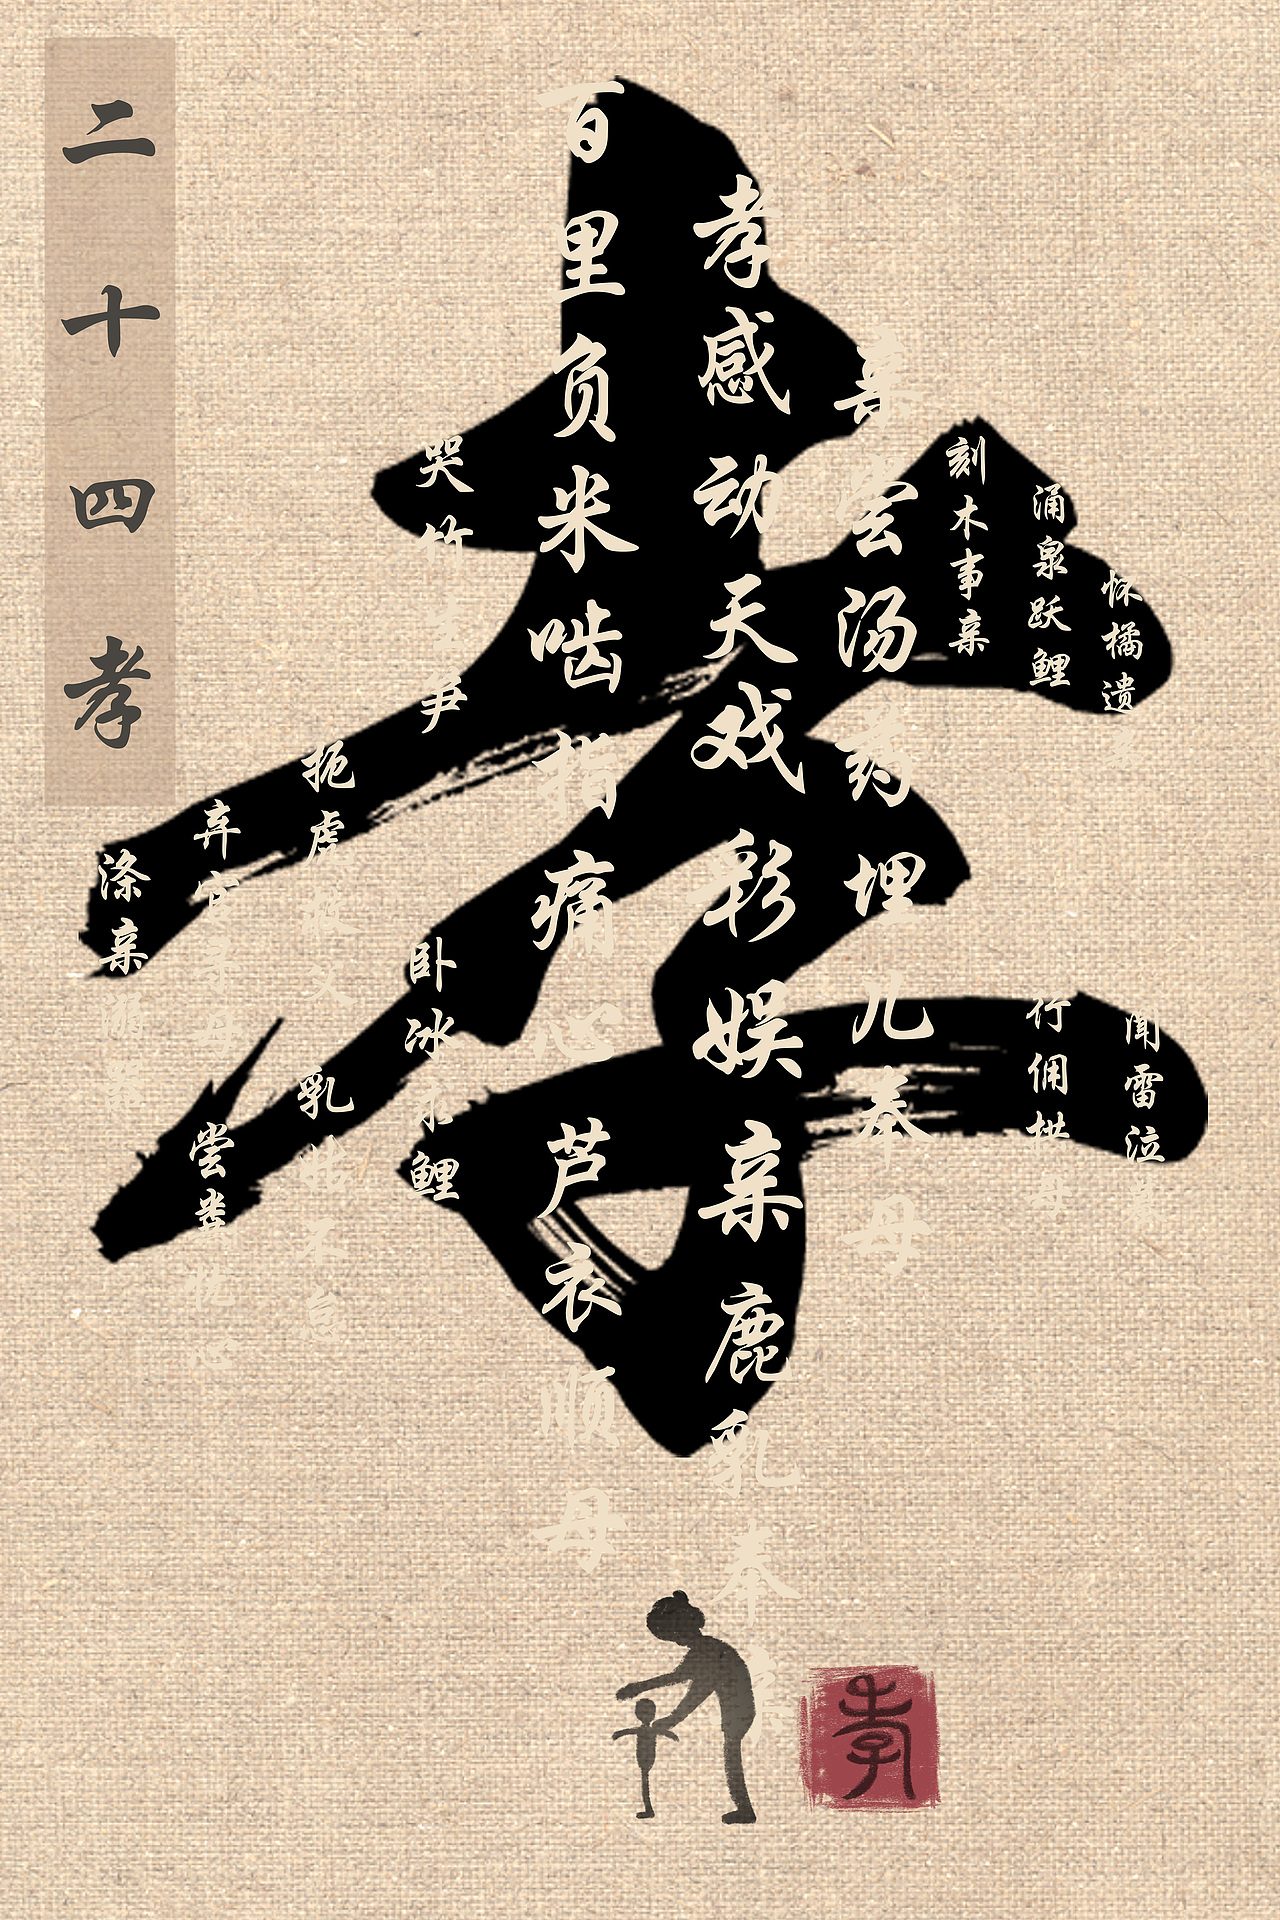 二十四孝
孝
怀橘遗亲
闻雷泣墓
涌泉跃鲤
行佣拱母
刻木事亲
亲尝汤药埋儿奉母
孝感动天戏彩娱亲鹿乳奉亲
百里负米啮指痛心芦衣顺母
哭竹生笋
卧冰求鲤
扼虎救父
乳姑不怠
弃官寻母
尝粪忧心
涤亲溺器
孝